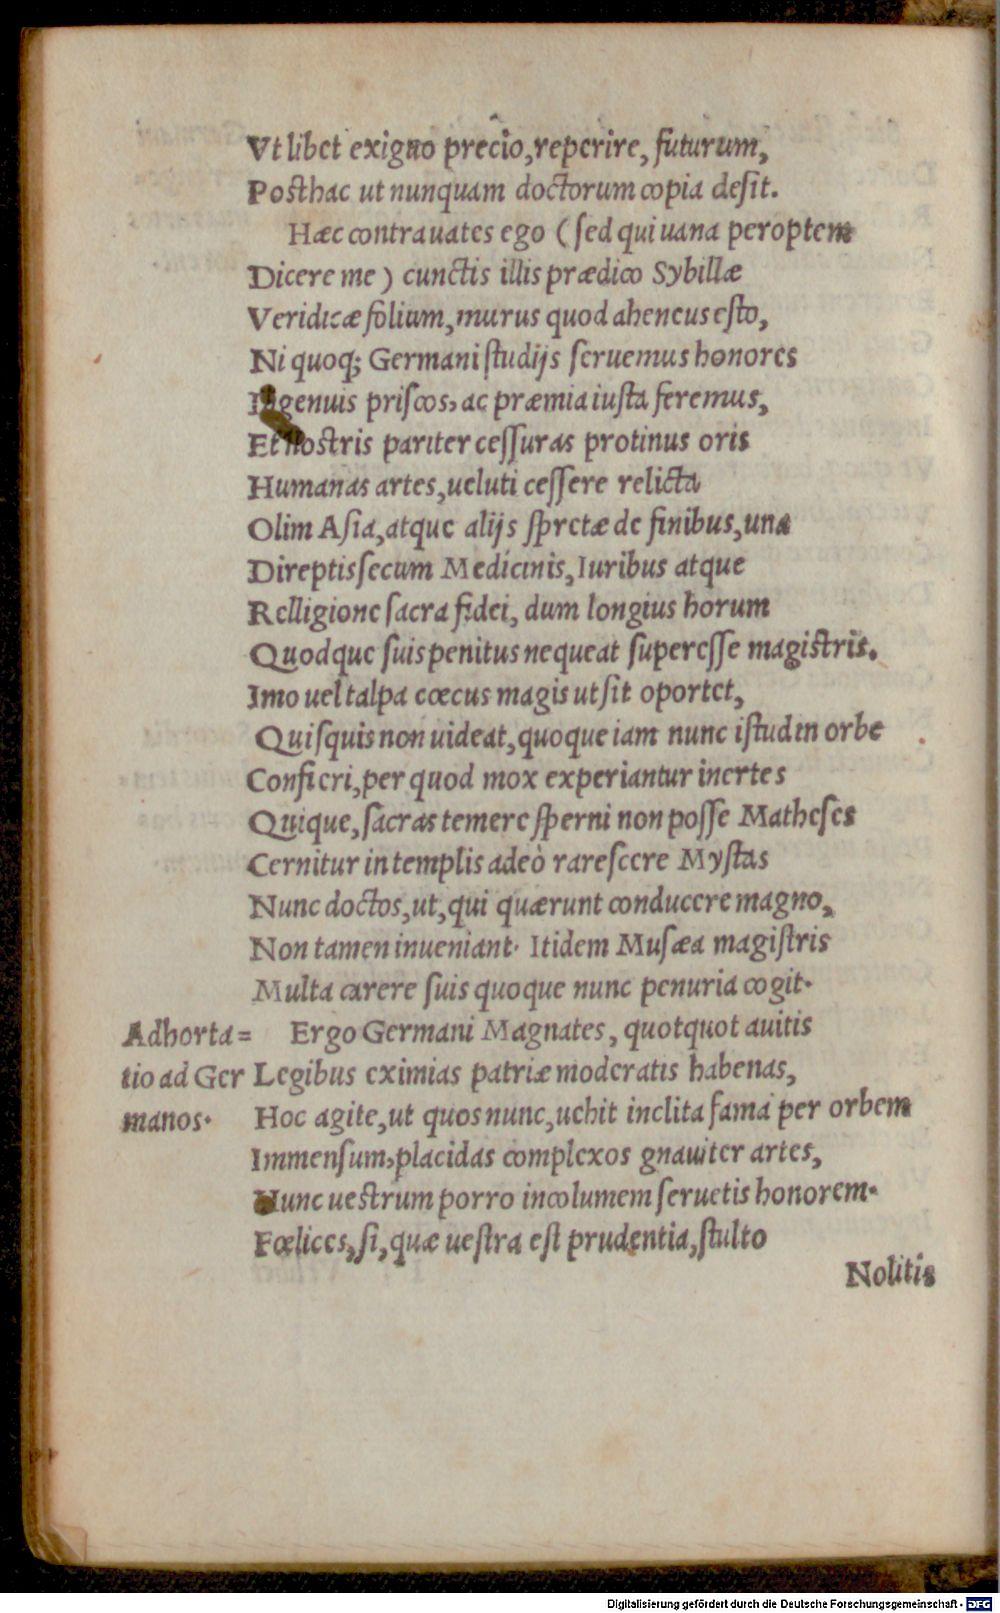 Vt libet exiguo precio, reperire, futurum,
Posthac ut nunquam doctorum copia desit.
Hæc contra uates ego (sed qui uana peroptem
Dicere me) cunctis illis prædico Sybillæ
Veridicæ folium, murus quod aheneus esto,
Ni quoq; Germani studijs seruemus honores
Ingenuis priscos, ac præmia iusta feremus,
Et nostris pariter cessuras protinus oris
Humanas artes, ueluti cessere relicta
Olim Asia, atque alijs spretæ de finibus, una
Direptis secum Medicinis, Iuribus atque
Relligione sacra fidei, dum longius horum
Quodque suis penitus nequeat superesse magistris.
Imo uel talpa cœcus magis ut sit oportet,
Quisquis non uideat, quoque iam nunc istud in orbe
Confieri, per quod mox experiantur inertes
Quique, sacras temere sperni non posse Matheses
Cernitur in templis adeò rarescere Mystas
Nunc doctos, ut, qui quærunt conducere magno,
Non tamen inueniant. Itidem Musæa magistris
Multa carere suis quoque nunc penuria cogit.
Adhorta= Ergo Germani Magnates, quotquot auitis
tio ad Ger Legibus eximias patriæ moderatis habenas,
manos. Hoc agite, ut quos nunc, uehit inclita fama per orbem
Immensum, placidas complexos gnauiter artes,
Nunc uestrum porro incolumem seruetis honorem.
Fœlices, si, quæ uestra est prudentia, stulto
Nolitis
Digitalisierung gefördert durch die Deutsche Forschungsgemeinschaft - DFG